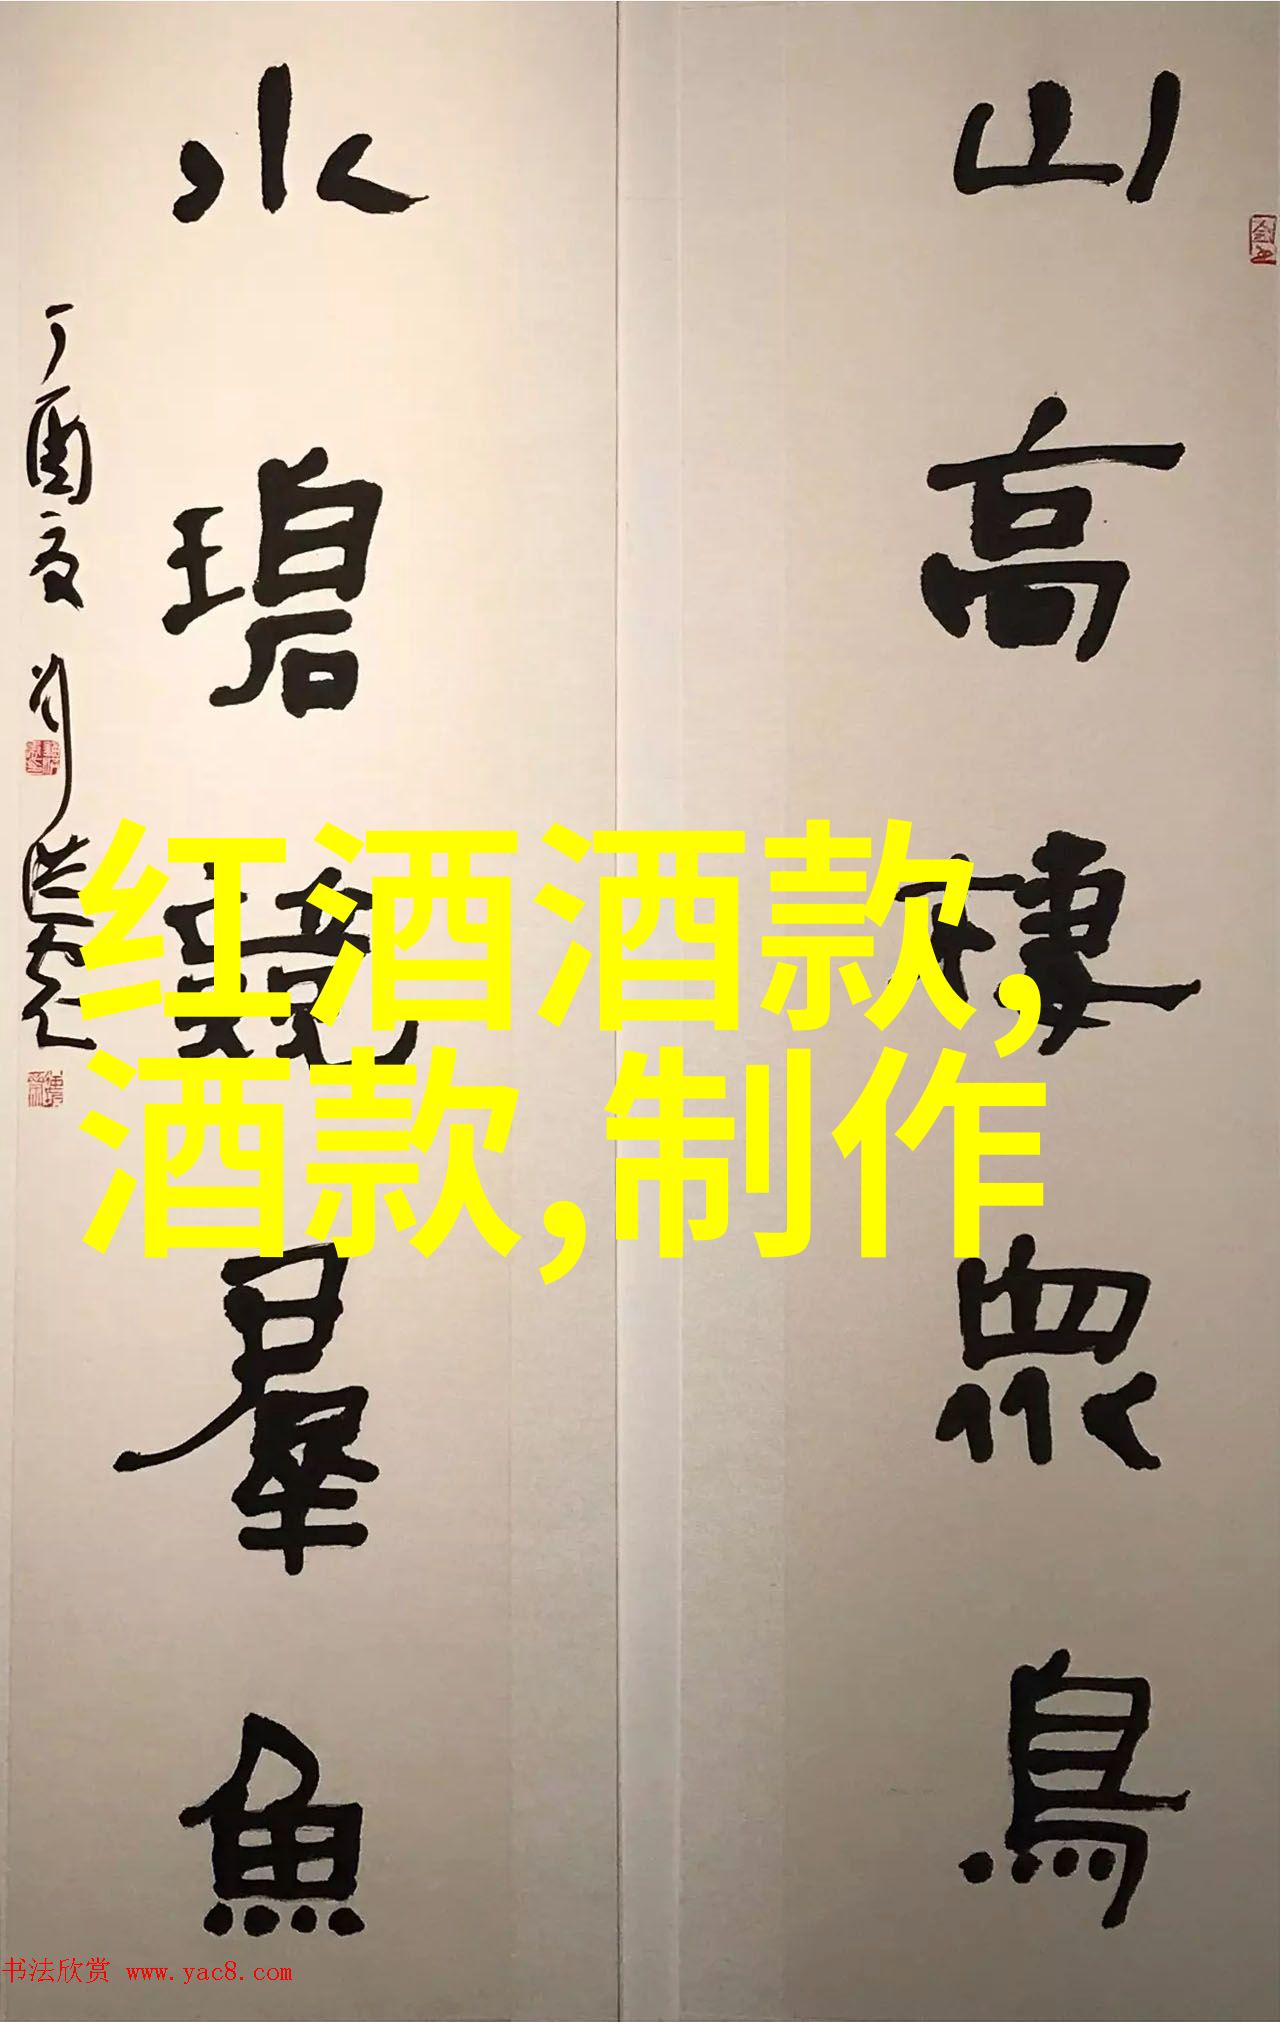 山高棲眾鳥
水碧競羣魚
丁酉夏 洪文
红酒酒款,
酒款,制作
书法欣赏 www.yac8.com